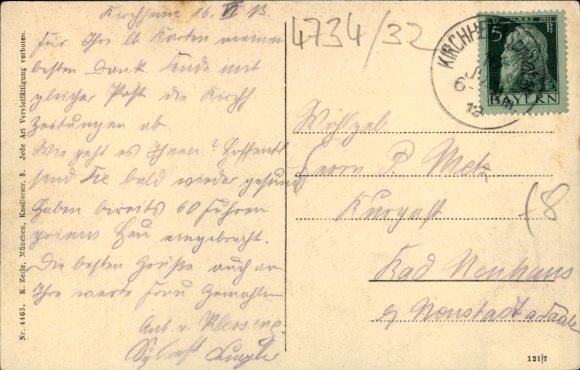 Kirchheim 16. VI 13.
Für Ihre lb. Karten meinen
besten Dank. Sende mit
gleicher Post die Kirchh
Zeitungen ab.
Wie geht es Ihnen? Hoffentl
sind Sie bald wieder gesund
Haben bereits 60 Fuhren
Heu eingebracht.
Die besten Grüße auch an
Ihre werte Frau Gemahlin
4734/32
KIRCHHE
5
BAYERN
Wohlgeb.
Herrn P. Metz
Kurgast
Bad Neuhaus
Neustadt a. Saale
8
Nr. 4465. K. Zerle, München, Knollerstr. 3. Jede Art Vervielfältigung verboten.
121/7